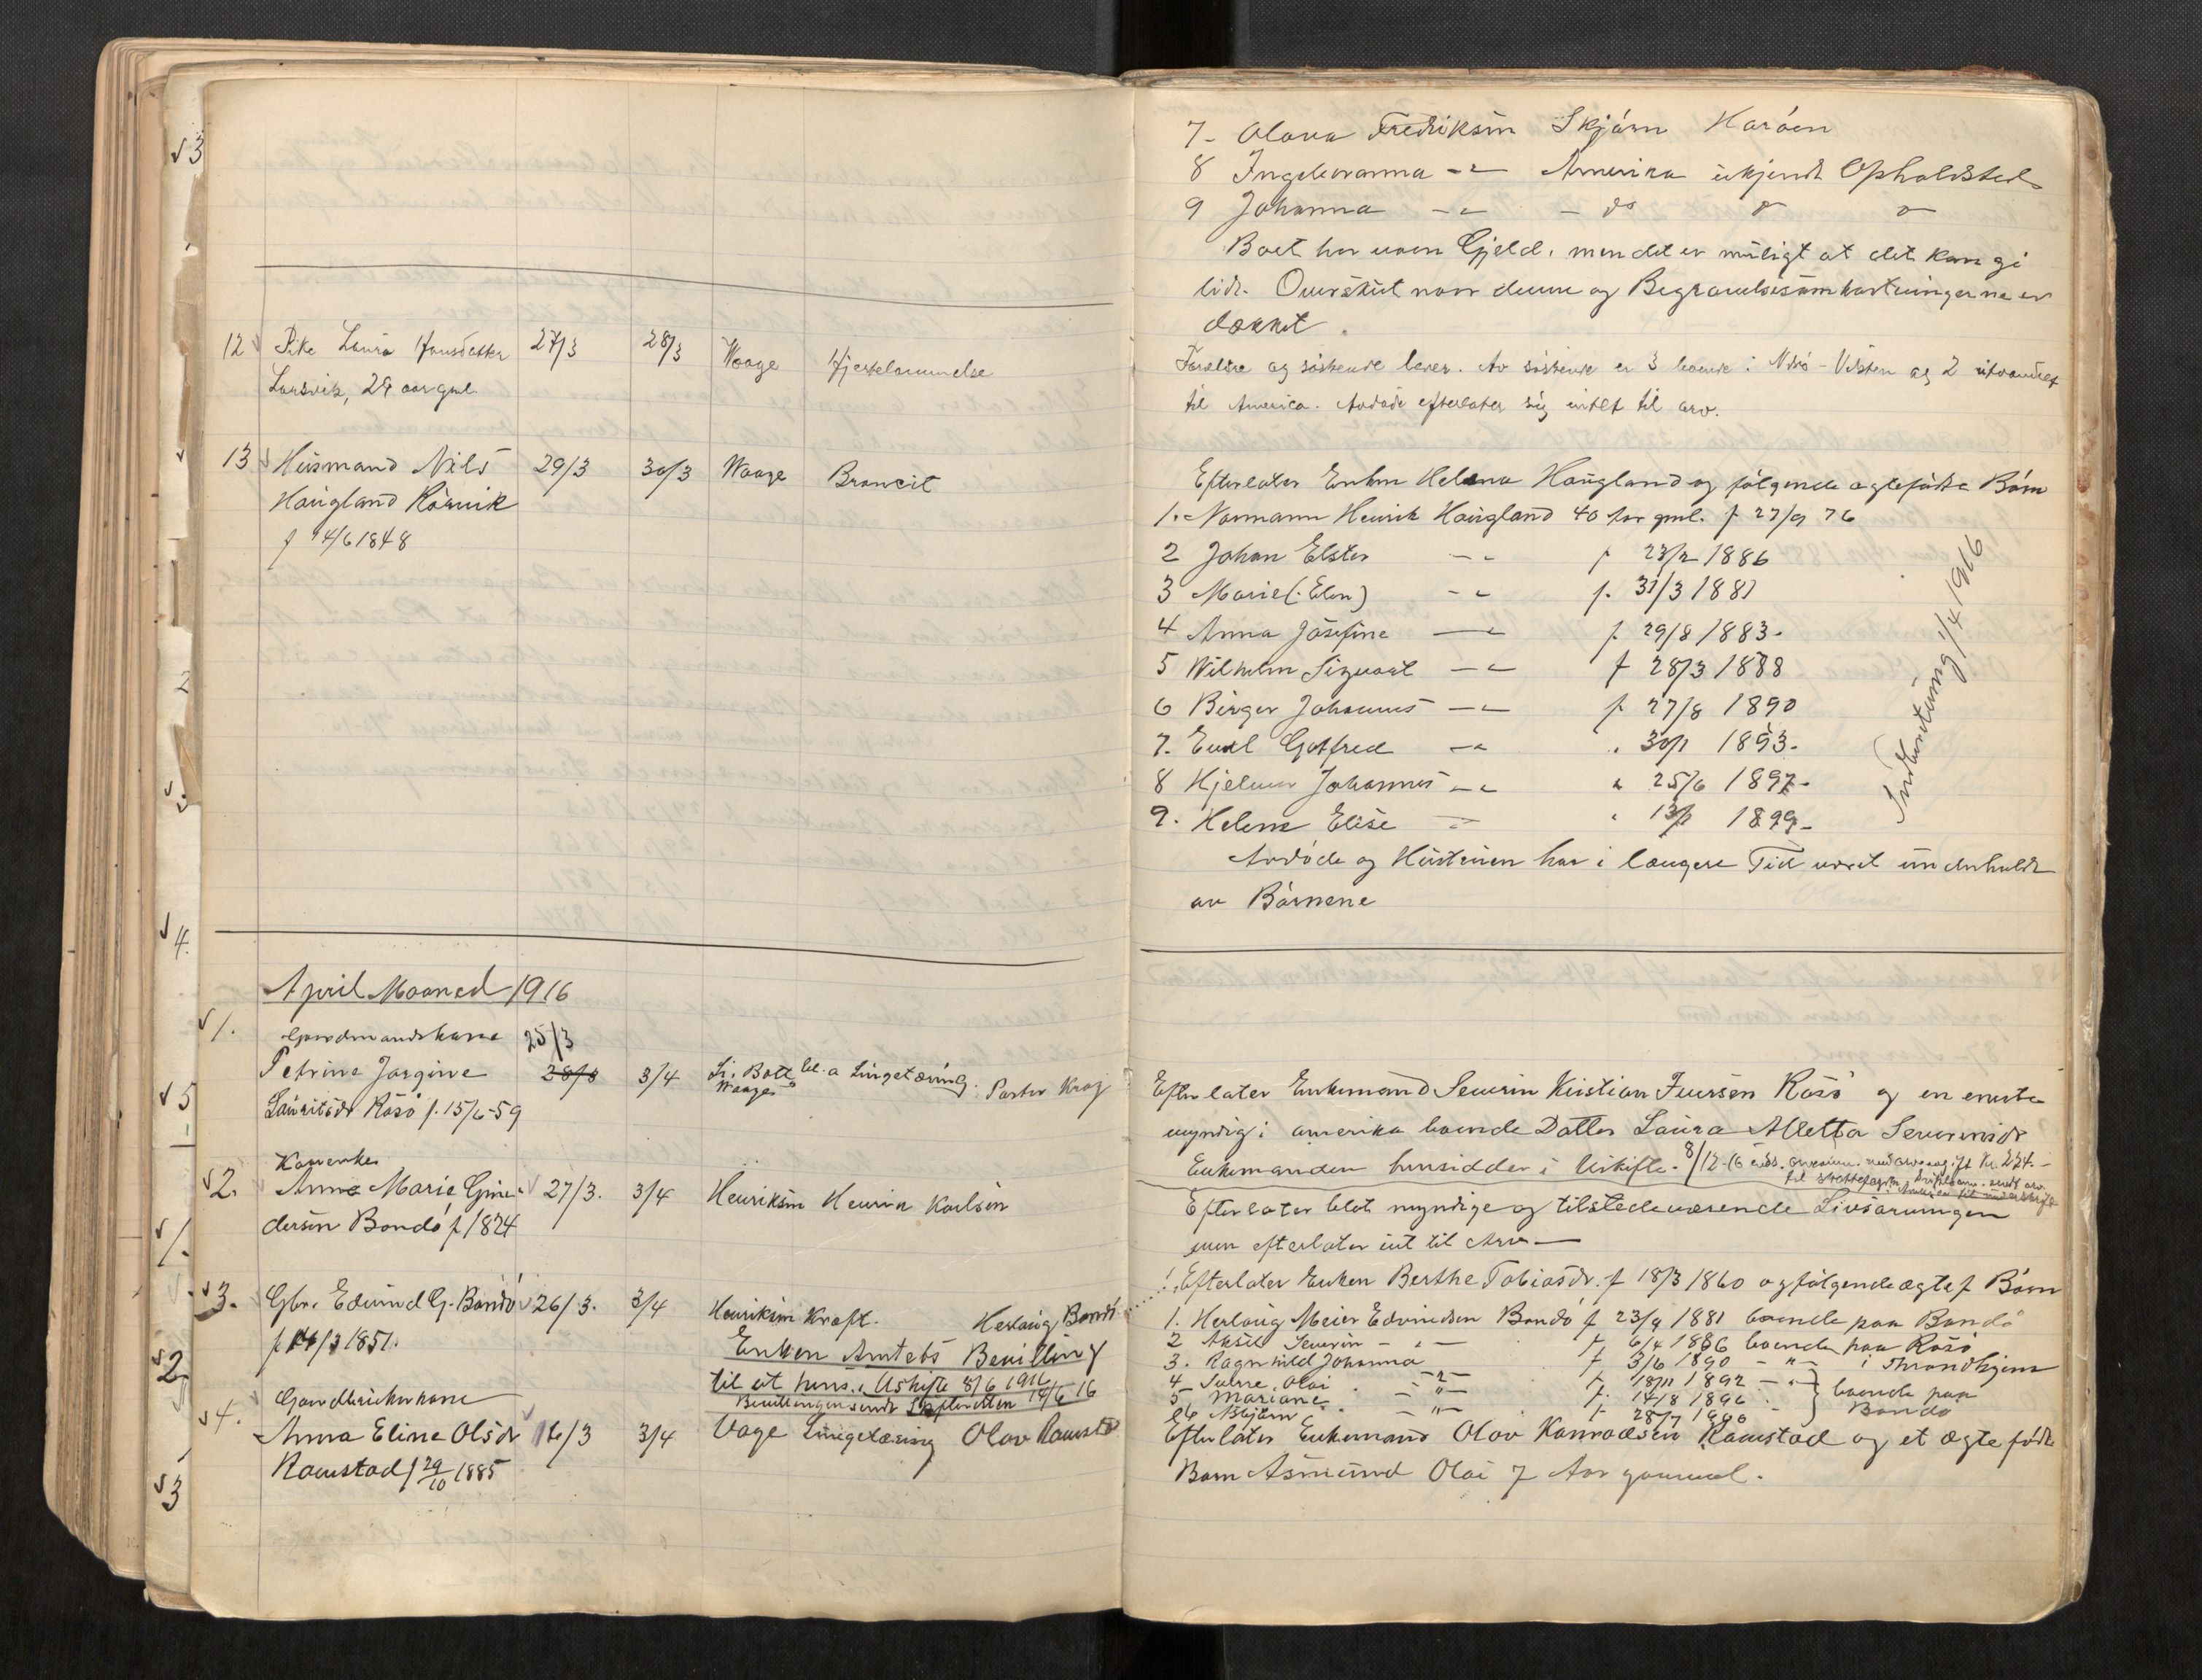 12 Pike Laura Hansdatter 27/3 28/3 Waage Hjertelammelse
Larsvik, 29 aar gml.
13 Husmand Nils 29/3 30/3 Waage Broncit
Haugland Rörvik
f 14/6 1848
April Maaned 1916
1. Gaardmandskone 25/3
Petrine Jörgine 28/3 3/4 Waages Lungetæring. Pastor Krog
Lauritsdr Rösö f. 15/6-59
2. Kaarenke
Anne Marie 27/3. 3/4 Henriksen Henrik Karlsen
dersen Bondö f 1824
3. Gbr. Edvind G. Bondö 26/3. 3/4 Henriksen Kræft. Herlaug Bondö
f 14/3 1851.
Enken Amtets Bevilling
til at hens. i Uskifte 8/6 1916
Bevillingen sendt 14/6 16
4. Gaardbrukerkone
Anna Eline Olsdr 16/3 3/4 Vage Lungetæring Olav Ramstad
Ramstad f 29/10 1885
7- Olava Fredriksen Skjærn Haröen
8 Ingeboranna -"- Amerika ukjendt Opholdsted
9 Johanna -"- - do do do
Boet har noen Gjeld, men det er muligt at det kan gi
lidt Overskut naar denne og Begravelsesomkostningerne er
dækket.
Forældre og söskende lever. Av söskende er 3 boende i Nærö-Vikten og 2 utvandret
til America. Avdöde efterlater sig intet til arv.
Efterlater Enken Helena Haugland og fölgende ægtefödte Börn
1. Normann Henrik Haugland 40 Aar gml. f 27/9 76
2 Johan Elster -"- f 23/2 1886
3 Marie (Elen) -"- f. 31/3 1881
4 Anna Josefine -"- f. 29/8 1883-
5 Wilhelm Sigvart -"- f 28/3 1888
6 Birger Johannes -"- f. 27/8 1890
7. Emil Gotfred -"- " 30/1 1893-
8 Hjelmer Johannes -"- " 25/6 1897-
9. Helene Elise " 13/1 1899-
Indberetning 1/4 1916
Avdöde og Hustruen har i længere Tid været underholdt
av Börnene
Efterlater Enkemand Severin Kristian Iversen Rösö og en eneste
myndig i amerika boende Datter Laura Aletta Severinsdr
Enkemanden hensidder i Uskifte. 8/12-16
Efterlater blot myndige og tilstedeværende Livsarvinger
men efterlater int til Arv —
Efterlater Enken Berthe Tobiasdr. f 18/3 1860 og fölgende ægtef Börn
1. Herlaug Meier Edvindsen Bondö f 23/9 1881 boende paa Bondö
2 Aksel Severin - " - f 6/4 1886 boende paa Rösö
3. Ragnhild Johanna f 3/6 1890 - " - i Throndhjem
4 Sverre Olai -"- f 18/11 1892 - " boende paa
5 Mariane -"- f. 14/8 1896 Bondö
6 Asbjörn -"- f 28/7 1900
Efterlater Enkemand Olav Konradsen Ramstad og et ægte födt
Barn Asmund Olai 7 Aar gammel.